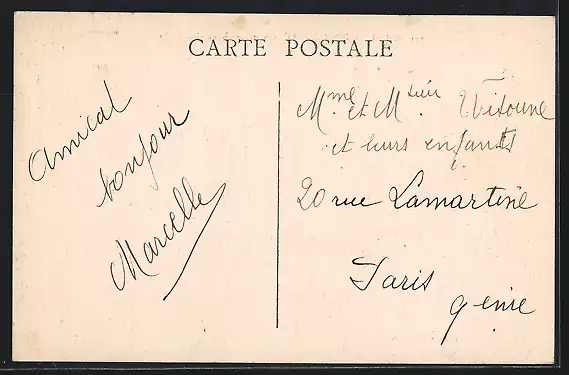 CARTE POSTALE
Amical
bonjour
Marcelle
Mme et Msieur
et leurs enfants
20 rue Lamartine
Paris
9 eme